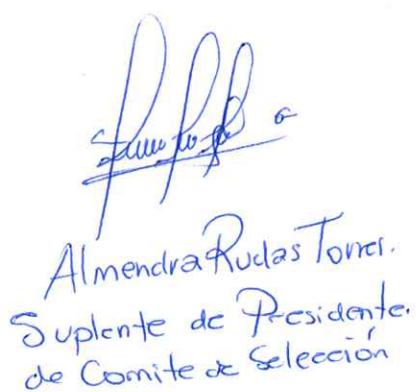 Almendra Rudas Torres.
Suplente de Presidente.
de Comite de Selección